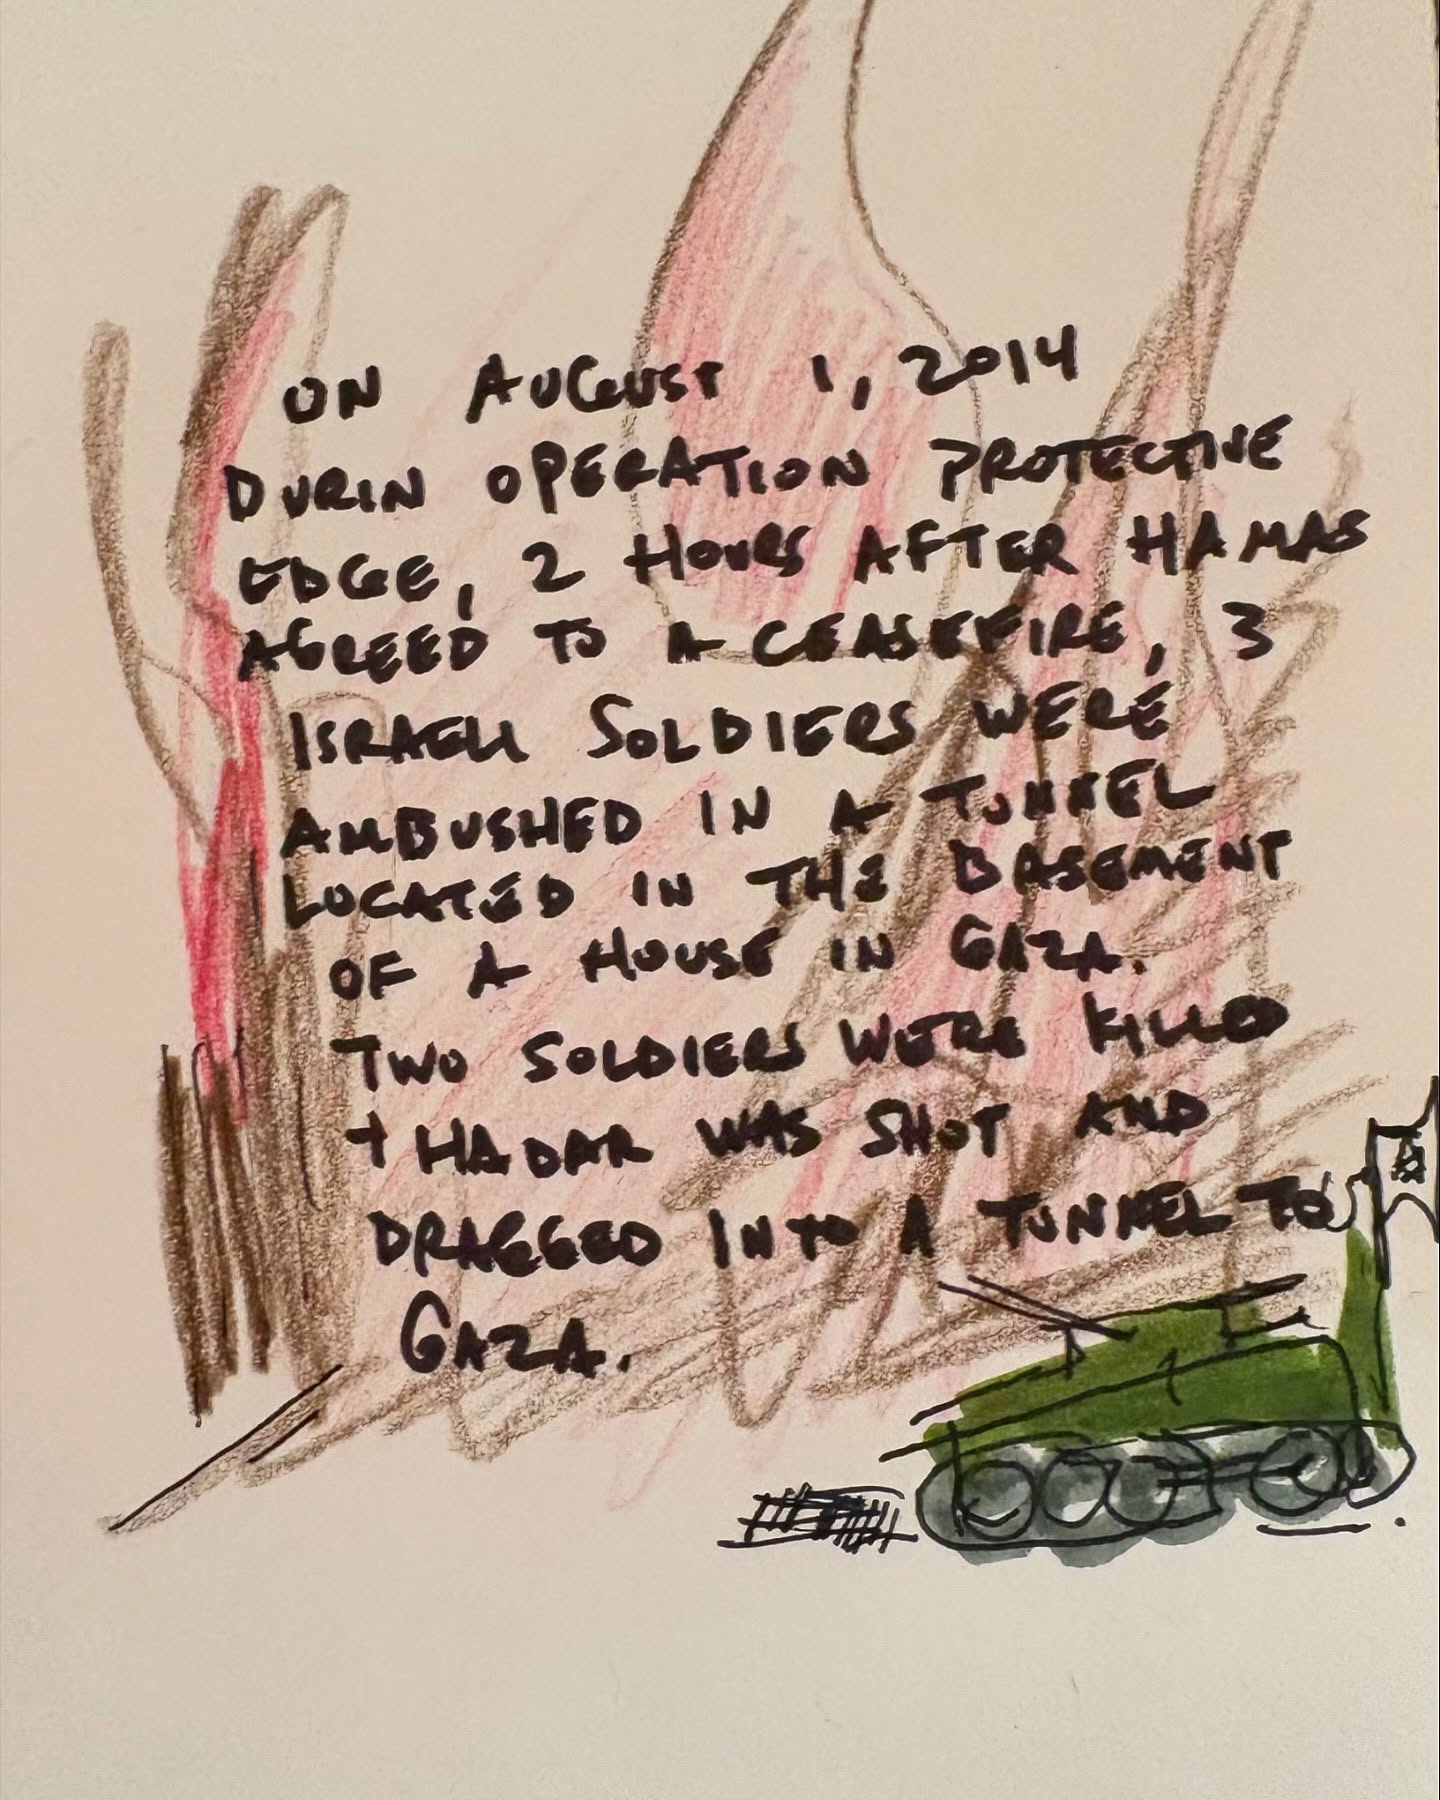 ON AUGUST 1, 2014
DURIN OPERATION PROTECTIVE
EDGE, 2 HOURS AFTER HAMAS
AGREED TO A CEASEFIRE, 3
ISRAELI SOLDIERS WERE
AMBUSHED IN A TUNNEL
LOCATED IN THE BASEMENT
OF A HOUSE IN GAZA.
TWO SOLDIERS WERE KILLED
+ HADAR WAS SHOT AND
DRAGGED INTO A TUNNEL TO
GAZA.